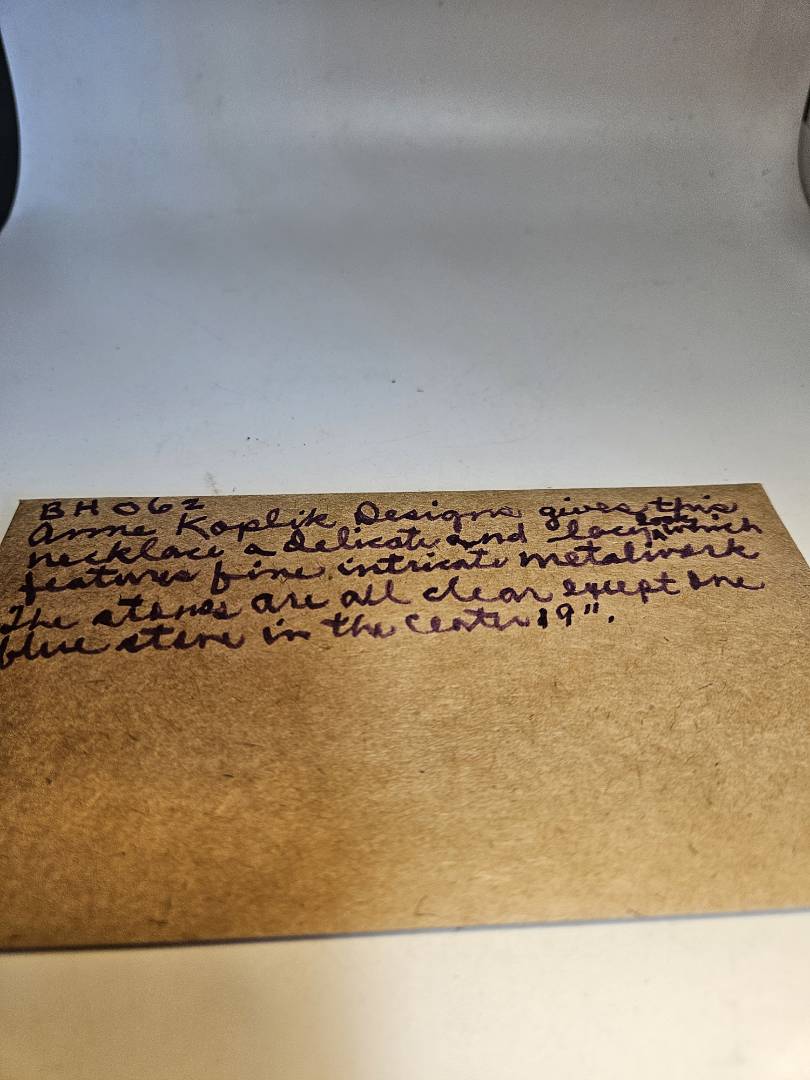 BH 062
Anne Koplik Designs gives this
necklace a delicate and lacy look which
features fine intricate metalwork
The stones are all clear except one
blue stone in the center 19".